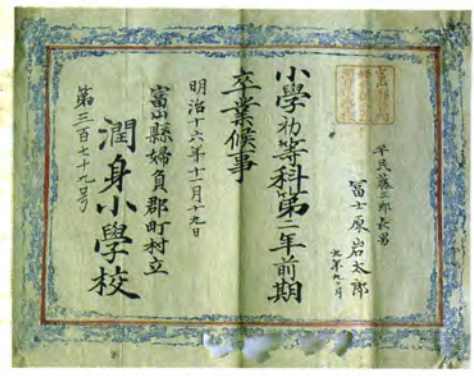 平民藤三郎長男
冨士原岩太郎
九年九ヶ月
小學初等科第二年前期
卒業候事
明治十六年十一月十九日
富山縣婦負郡町村立
潤身小學校
第三百七十九号